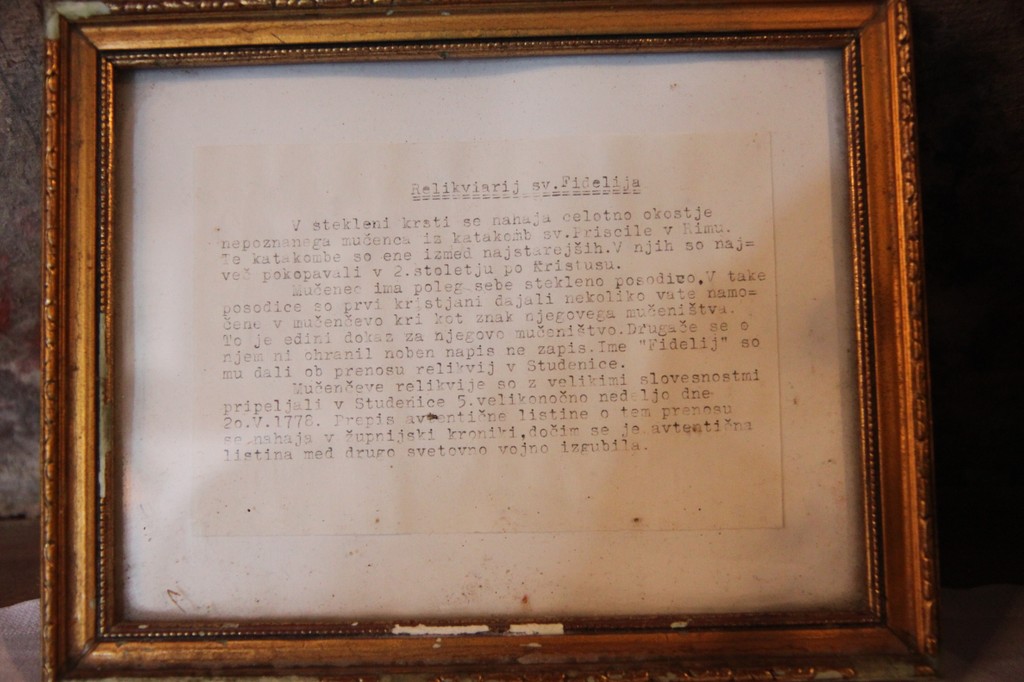 Relikviarij sv.Fidelija
V stekleni krsti se nahaja celotno okostje
nepoznanega mučenca iz katakomb sv.Priscile v Rimu.
Te katakombe so ene izmed najstarejših.V njih so naj=
več pokopavali v 2.stoletju po Kristusu.
Mučenec ima poleg sebe stekleno posodico.V take
posodice so prvi kristjani dajali nekoliko vate namo=
čene v mučenčevo kri kot znak njegovega mučeništva.
To je edini dokaz za njegovo mučeništvo.Drugače se o
njem ni ohranil noben napis ne zapis.Ime "Fidelij" so
mu dali ob prenosu relikvij v Studenice.
Mučenčeve relikvije so z velikimi slovesnostmi
pripeljali v Studenice 5.velikonočno nedeljo dne
20.V.1778. Prepis avtentične listine o tem prenosu
se nahaja v župnijski kroniki,dočim se je avtentična
listina med drugo svetovno vojno izgubila.